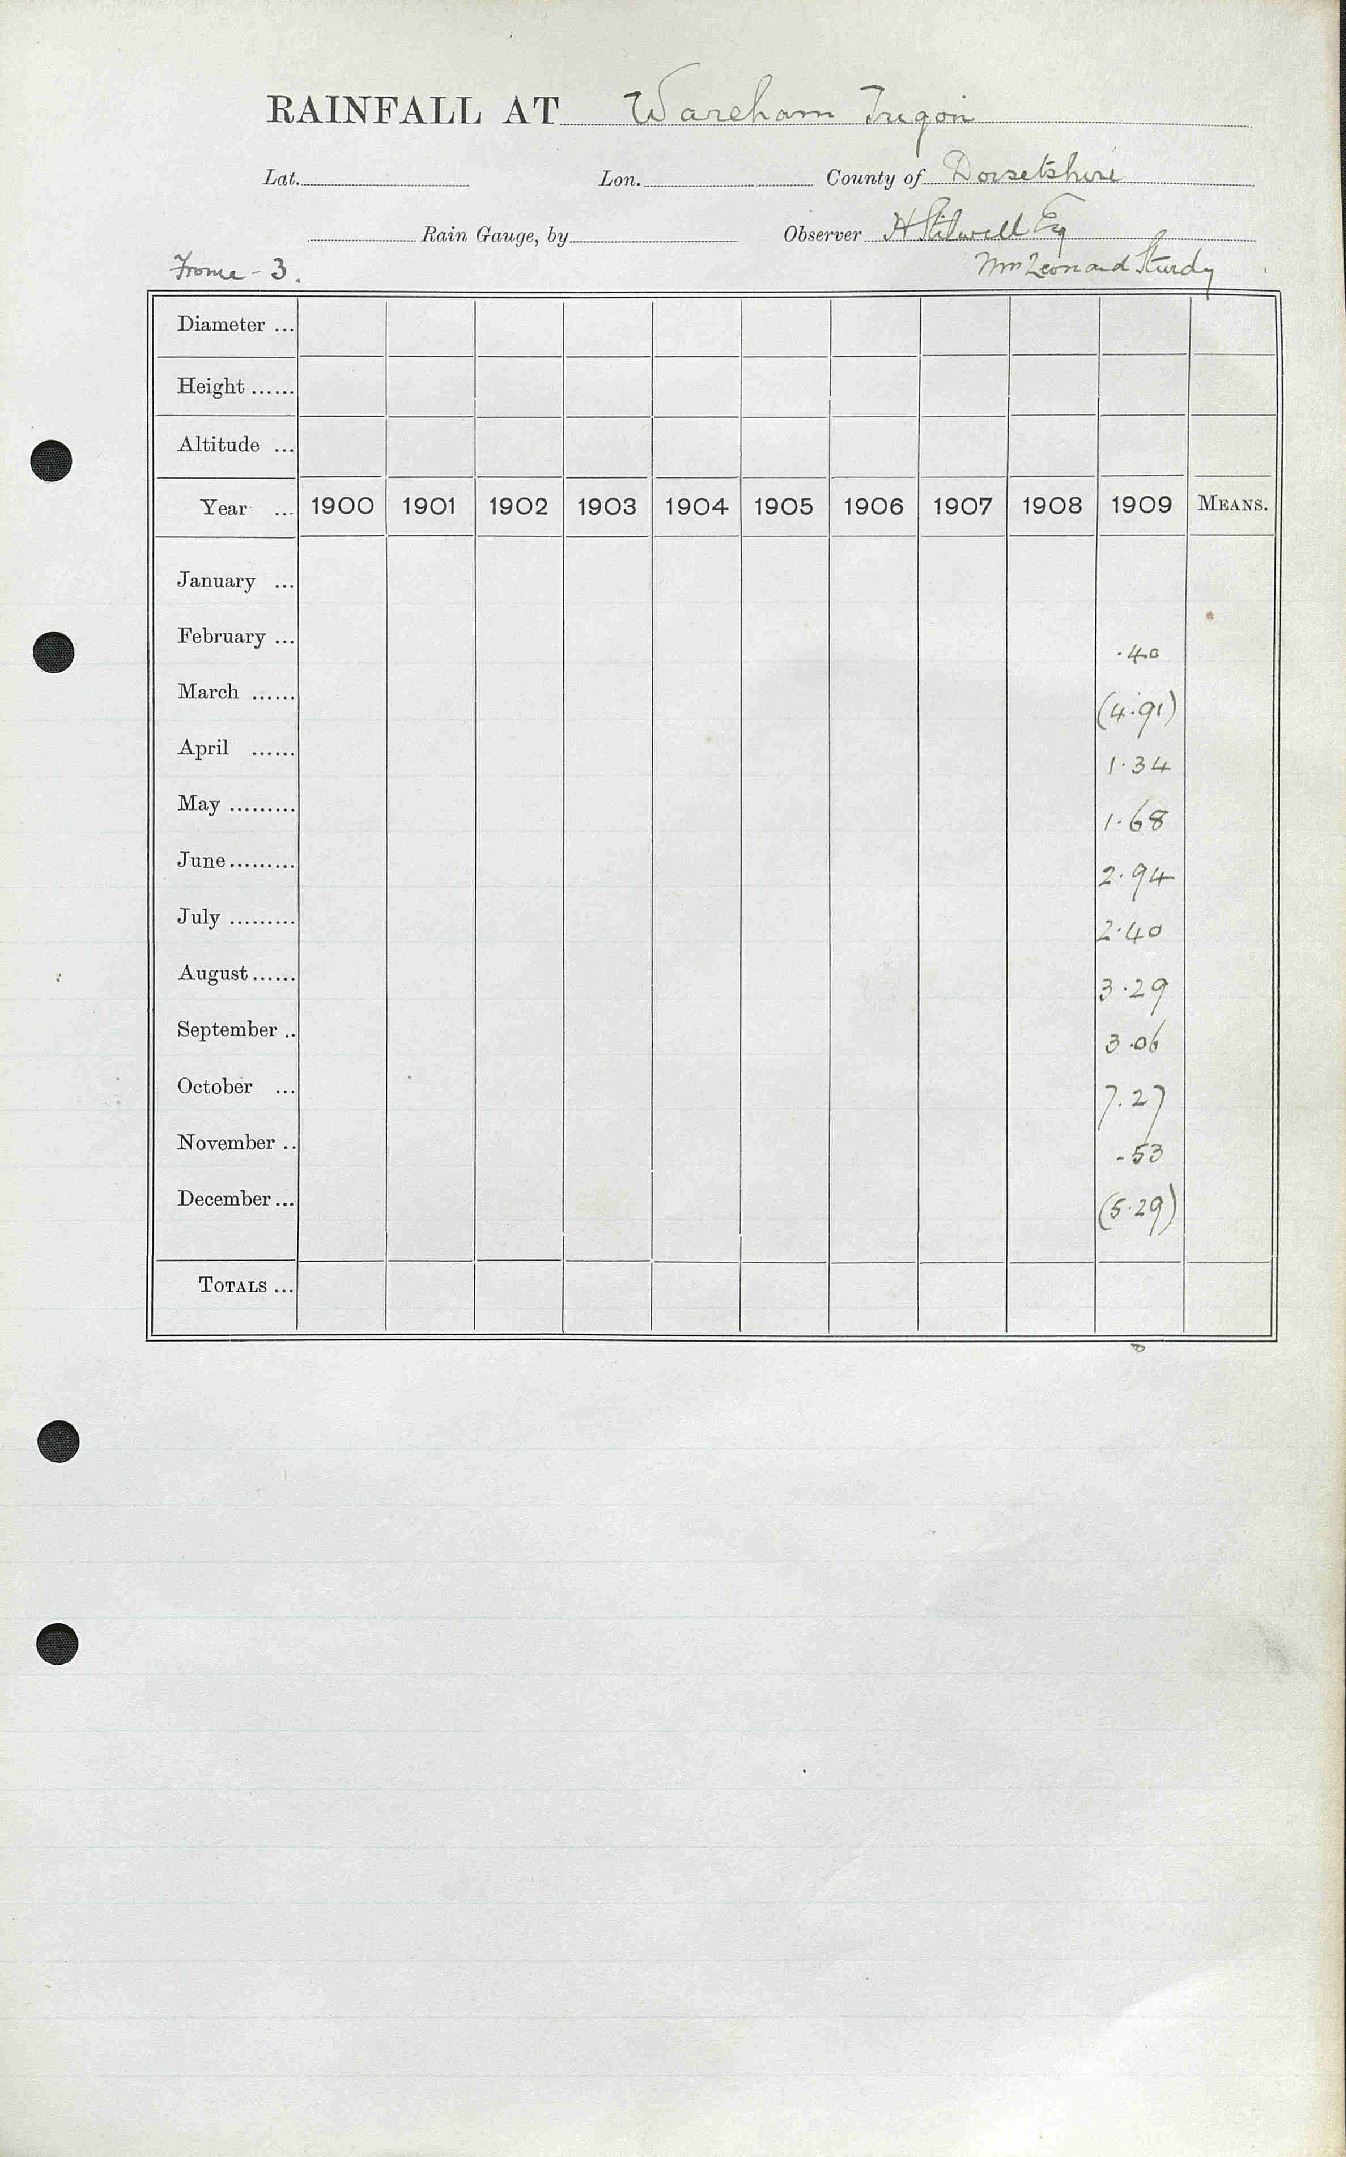 RAINFALL AT Wareham Trigon
Lat. Lon. County of Dorsetshire
Rain Gauge, by Observer H Stilwell Esq
Frome - 3. Leonard Sturdy
Diameter ...
Height ......
Altitude ...
Year ... 1900 1901 1902 1903 1904 1905 1906 1907 1908 1909 MEANS.
January ...
February ... .40
March ...... (4.91)
April ...... 1.34
May ......... 1.68
June ......... 2.94
July ......... 2.40
August ...... 3.29
September .. 3.06
October ... 7.27
November .. .53
December ... (5.29)
TOTALS ...